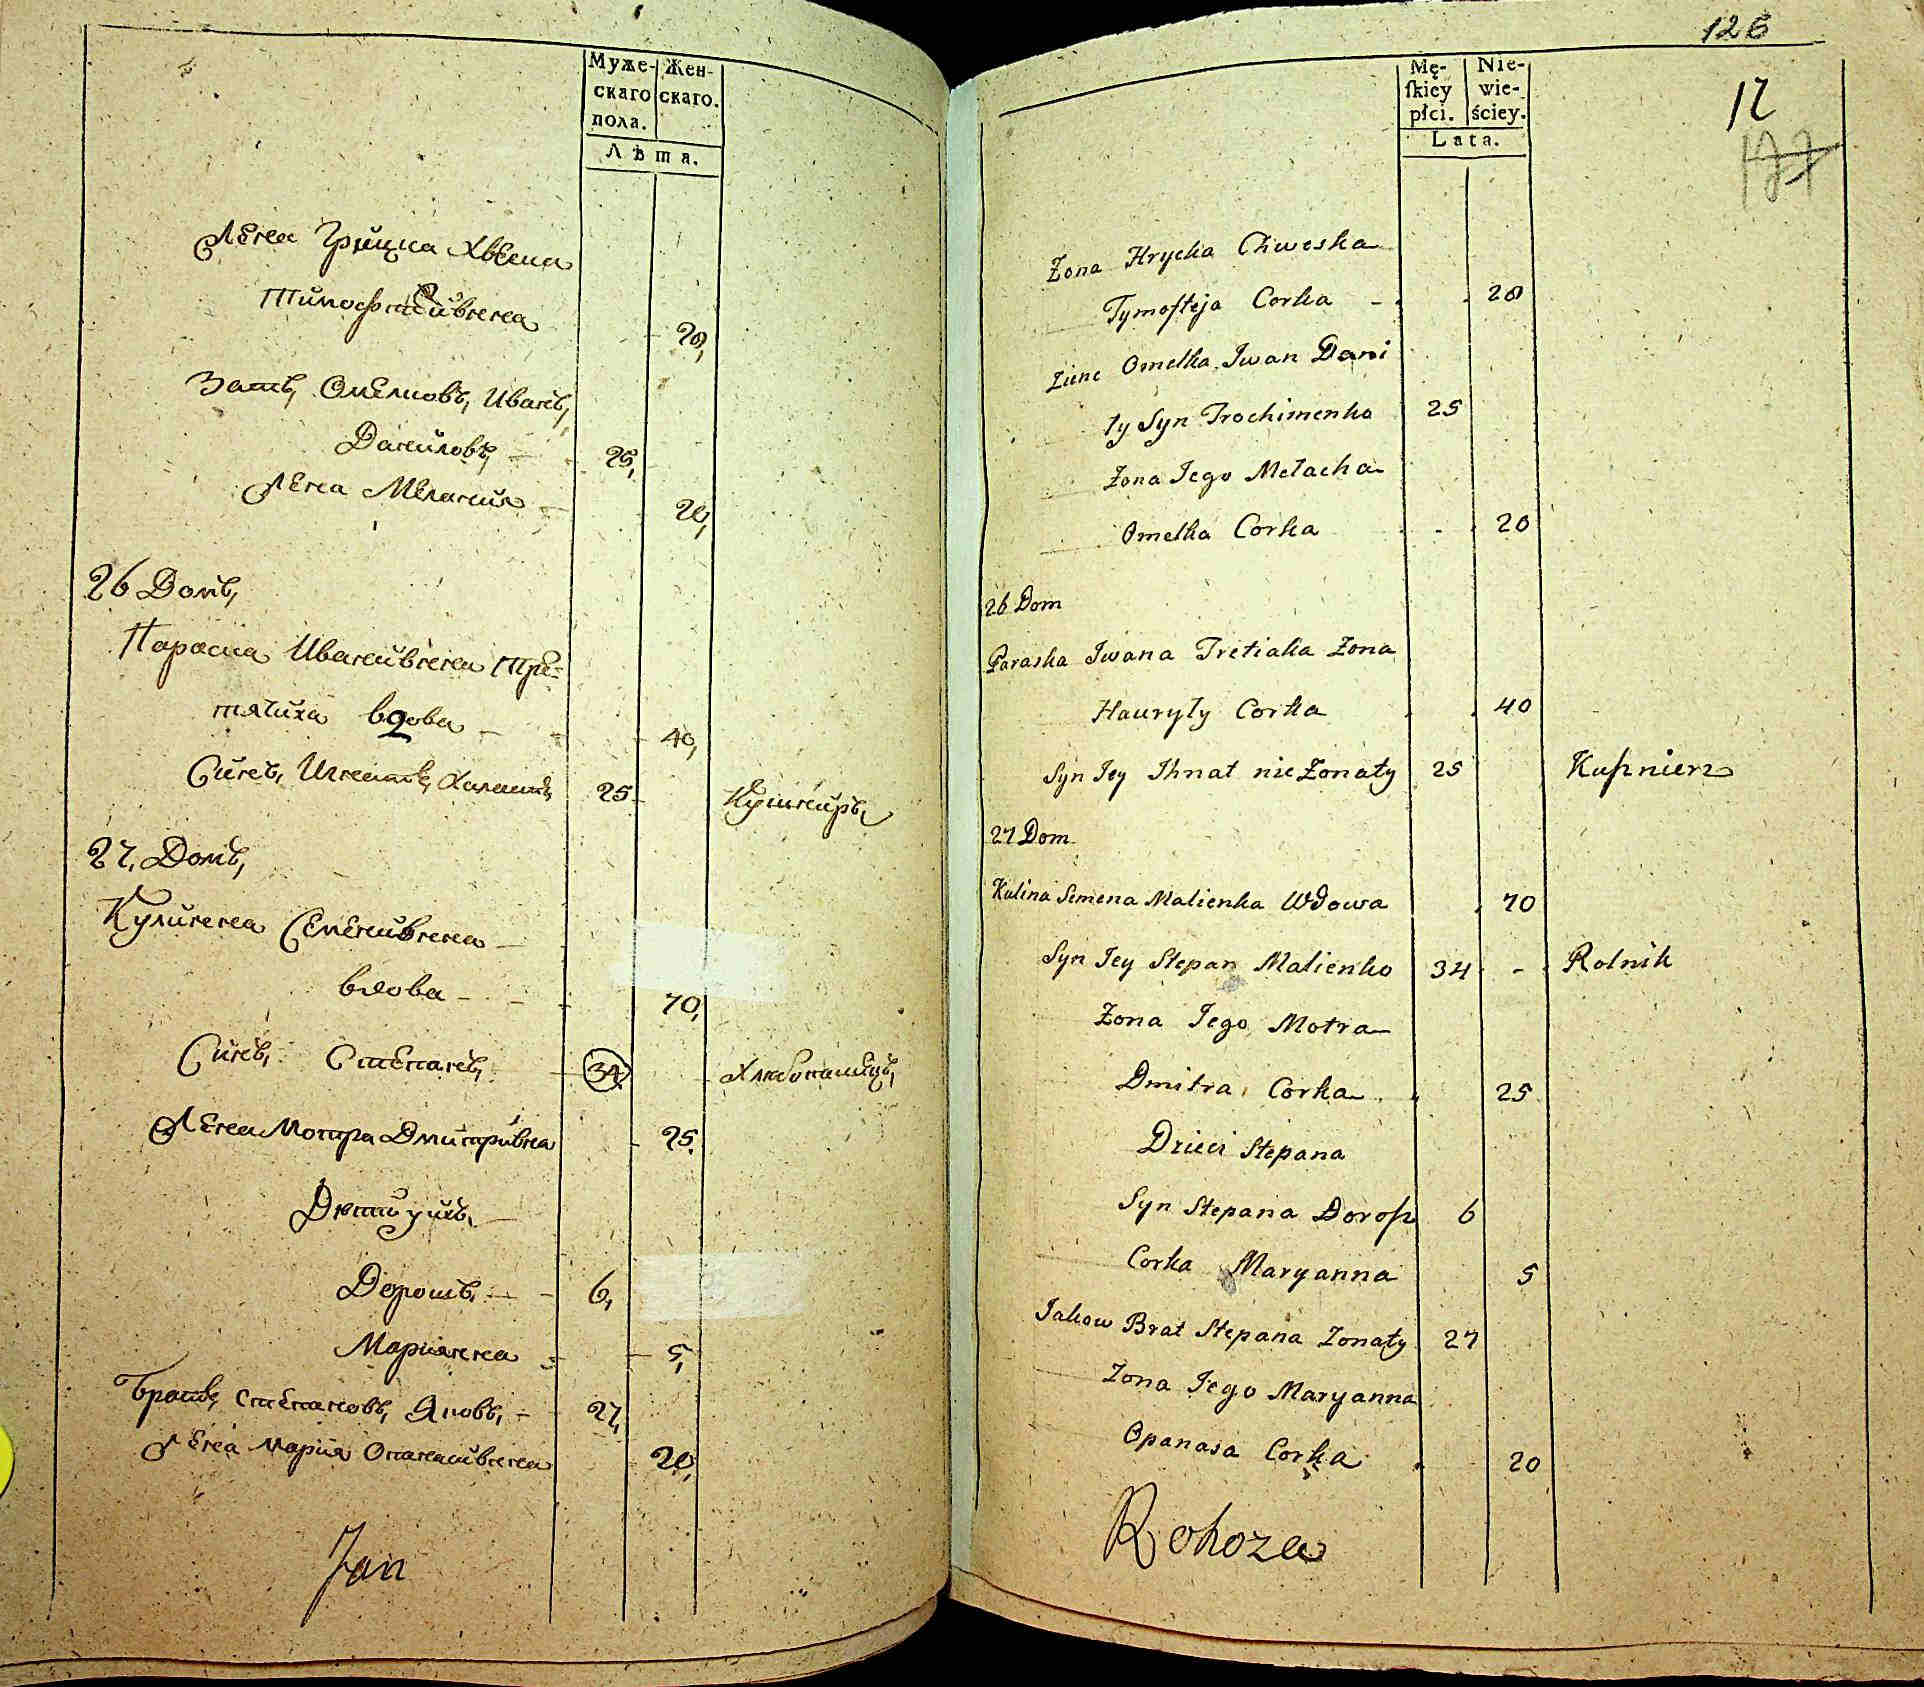 Муже-
скаго
пола.
Жен-
скаго.
Лѣта.
Жена Грицка Хвеска
Тимофтеивна
20,
Зять, Омелковъ, Иванъ,
Даниловъ, 25,
Жена Мелания 20,
26 Домъ,
Параска Иванивна Тре-
тячиха вдова 40,
Синъ, Игнатъ, Халастъ, 25 Кушниръ,
27, Домъ,
Кулинна Семенивна
вдова 70,
Синъ, Степанъ, 34 Хлѣбопашецъ,
Жена Мотра Дмитривна 25
Дѣти ихъ,
Дорошъ, 6,
Марианна 5,
Братъ, Степановъ, Яковъ, 27,
Жена Мария Опанасивна 20,
Jan
126
Mę-
ſkiey
płci.
Nie-
wie-
ściey.
Lata.
12
177
Żona Hrycka Chweska
Tymofteja Corka 20
Zienc Omelka Jwan Dani
ły Syn Trochimenko 25
Żona Jego Mełacha
Omelka Corka 20
26 Dom
Paraska Jwana Tretiaka Żona
Hauryły Corka 40
Syn Jey Jhnat nie Żonaty 25 Kuſnierz
27 Dom
Kulina Semena Malienka Wdowa 70
Syn Jey Stepan Malienko 34 Rolnik
Żona Jego Motra
Dmitra Corka 25
Dzieci Stepana
Syn Stepana Doroſz 6
Corka Maryanna 5
Jakow Brat Stepana Żonaty 27
Żona Jego Maryanna
Opanasa Corka 20
Rohoza